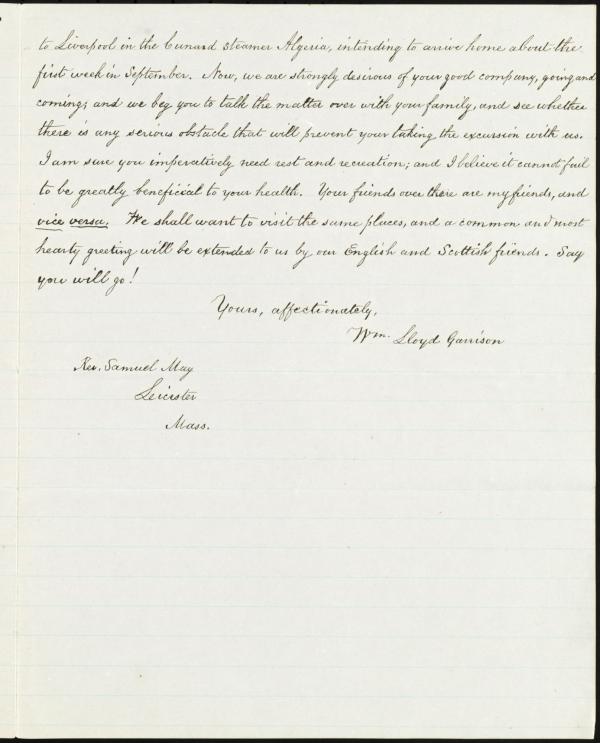 to Liverpool in the Cunard steamer Algeria, intending to arrive home about the
first week in September. Now, we are strongly desirous of your good company, going and
coming; and we beg you to talk the matter over with your family, and see whether
there is any serious obstacle that will prevent your taking the excursion with us.
I am sure you imperatively need rest and recreation; and I believe it cannot fail
to be greatly beneficial to your health. Your friends over there are my friends, and
vice versa. We shall want to visit the same places, and a common and most
hearty greeting will be extended to us by our English and Scottish friends. Say
you will go!
Yours, affectionately,
Wm. Lloyd Garrison
Rev. Samuel May
Leicester
Mass.